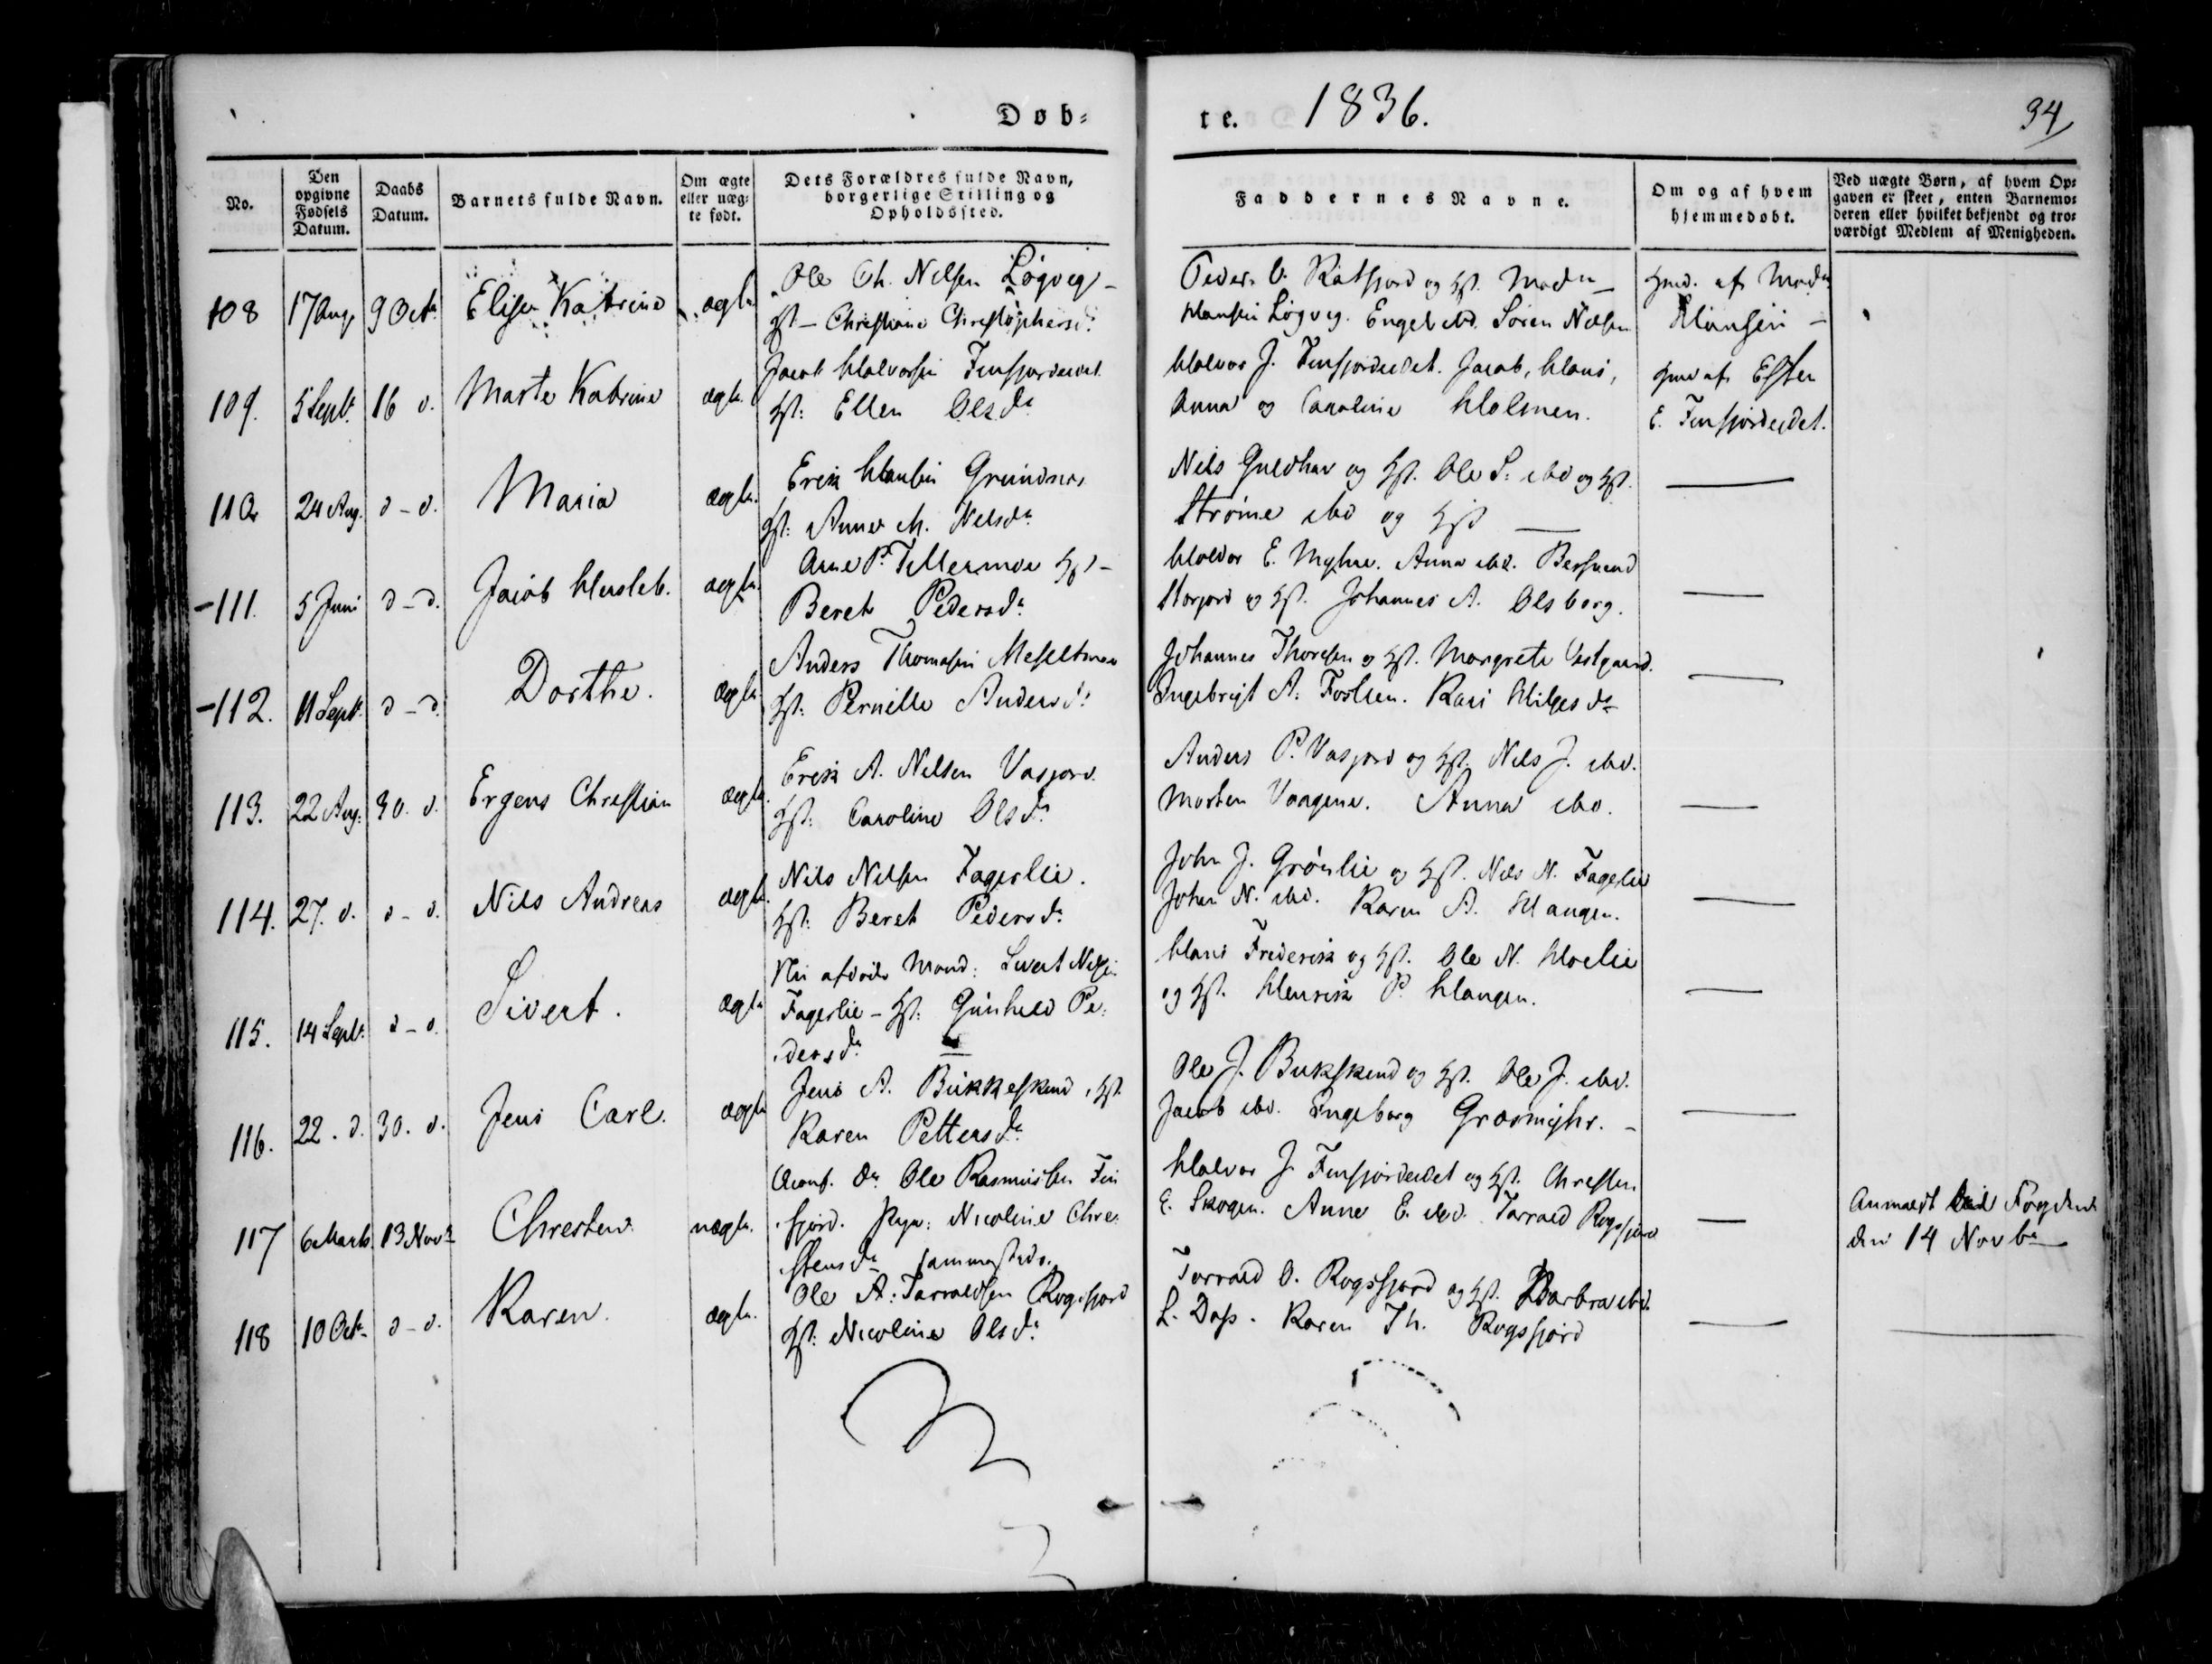 Døb-
te. 1836.
34
No.
Den opgivne Fødsels Datum.
Daabs Datum.
Barnets fulde Navn.
Om ægte eller uægte født.
Dets Forældres fulde Navn, borgerlige Stilling og Opholdssted.
Faddernes Navne.
Om og af hvem hjemmedøbt.
Ved uægte Børn, af hvem Opgaven er skeet, enten Barnemoderen eller hvilket bekjendt og troværdigt Medlem af Menigheden.
108 17 Aug. 9 Octr Elise Katrine ægte
Ole Ch. Nelsen Løgvig
Hst. Christiane Christophersdr
Peder O. Ratfjord og Hst. Madm
Hansen Løgvig. Engel ibd. Søren Nilsen
Hmd. af Madm
Hansen
109. 5 Septr 16 d. Marte Katrine ægte
Jacob Halvorsen Finfjordeidet
Hst: Ellen Olsdr
Halvor J. Finfjordeidet. Jacob, Hans,
Anna og Caroline Holmen.
Hmd af Esten
E. Finfjordeidet.
110 24 Aug. d-d. Maria ægte
Erik Hansen Grundnes
Hst: Anne M. Nelsdr
Nils Guldhav og Hst. Ole S. ibd og Hst.
Strøme ibd og Hst
111. 5 Juni d-d. Jacob Husleb. ægte
Arne P. Tellermoe Hst
Beret Pedersdr
Halvor E. Myhre. Anna ibd. Bersvend
Storjord og Hst. Johannes A. Olsborg.
112. 11 Septr d-d. Dorthe. ægte
Anders Thomasen Meseltmoe
Hst: Pernille Andersdr
Johannes Thoresen og Hst. Margrete Vestgaard.
Ingebrigt A. Foslien. Kari Helgesdr
113. 22 Aug. 30. d. Ergens Christian ægte
Erik A. Nelsen Vasjord.
Hst: Caroline Olsdr
Anders P. Vasjord og Hst. Nils J. ibd.
Morten Vaagene. Anna ibd.
114. 27. d. d-d. Nils Andreas ægte
Nils Nelsen Fagerlie.
Hst: Beret Pedersdr
John J. Grønlie og Hst. Nils N. Fagerlie
Johan N. ibd. Karen A. Mangen.
115. 14 Septr d-d. Sivert. ægte
Nu afdøde Mand: Sivert Nelsen
Fagerlie - Hst: Gunhild Pe-
dersdr
Hans Frederik og Hst. Ole N. Moelie
og Hst. Henrik P. Mangen.
116. 22. d. 30. d. Jens Carl. ægte
Jens A. Bukkeskind, Hst.
Karen Pettersdr
Ole J. Bukskind og Hst. Ole J. ibd.
Jacob ibd. Ingeborg Græsmyhr.
117 6 Marts 13 Novr Chresten uægte.
Ole Rasmussen Fin
fjord. Pige: Nicoline Chre-
stensdr sammesteds.
Halvor J. Finfjordeidet og Hst. Chresten
E. Skogen. Anne E. ibd. Tarrald Rogsfjord
Anmeldt til Fogden
den 14 Novbr
118 10 Octr d-d. Karen. ægte.
Ole A. Tarraldsen Rogsfjord
Hst: Nicoline Olsdr
Tarrald O. Rogsfjord og Hst. Barbra ibd.
L. Dass. Karen Th. Rogsfjord